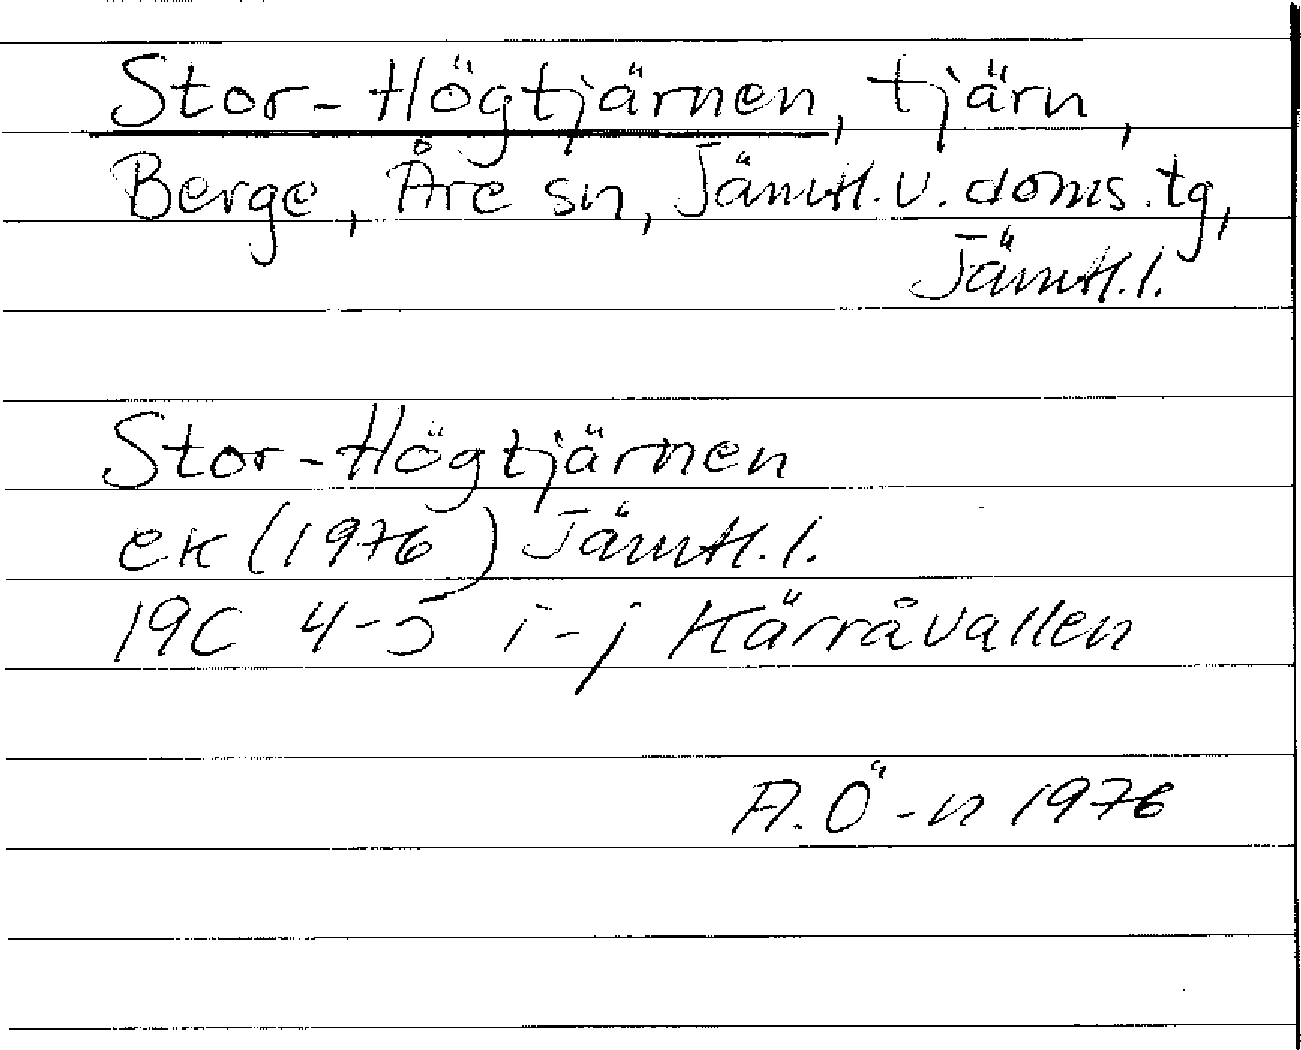 Stor-Högtjärnen, tjärn,
Berge, Åre sn, Jämtl. v. doms. tg,
Jämtl. l.
Stor-Högtjärnen
ek (1976) Jämtl. l.
19C 4-5 i-j Kärråvallen
A. Ö-n 1976